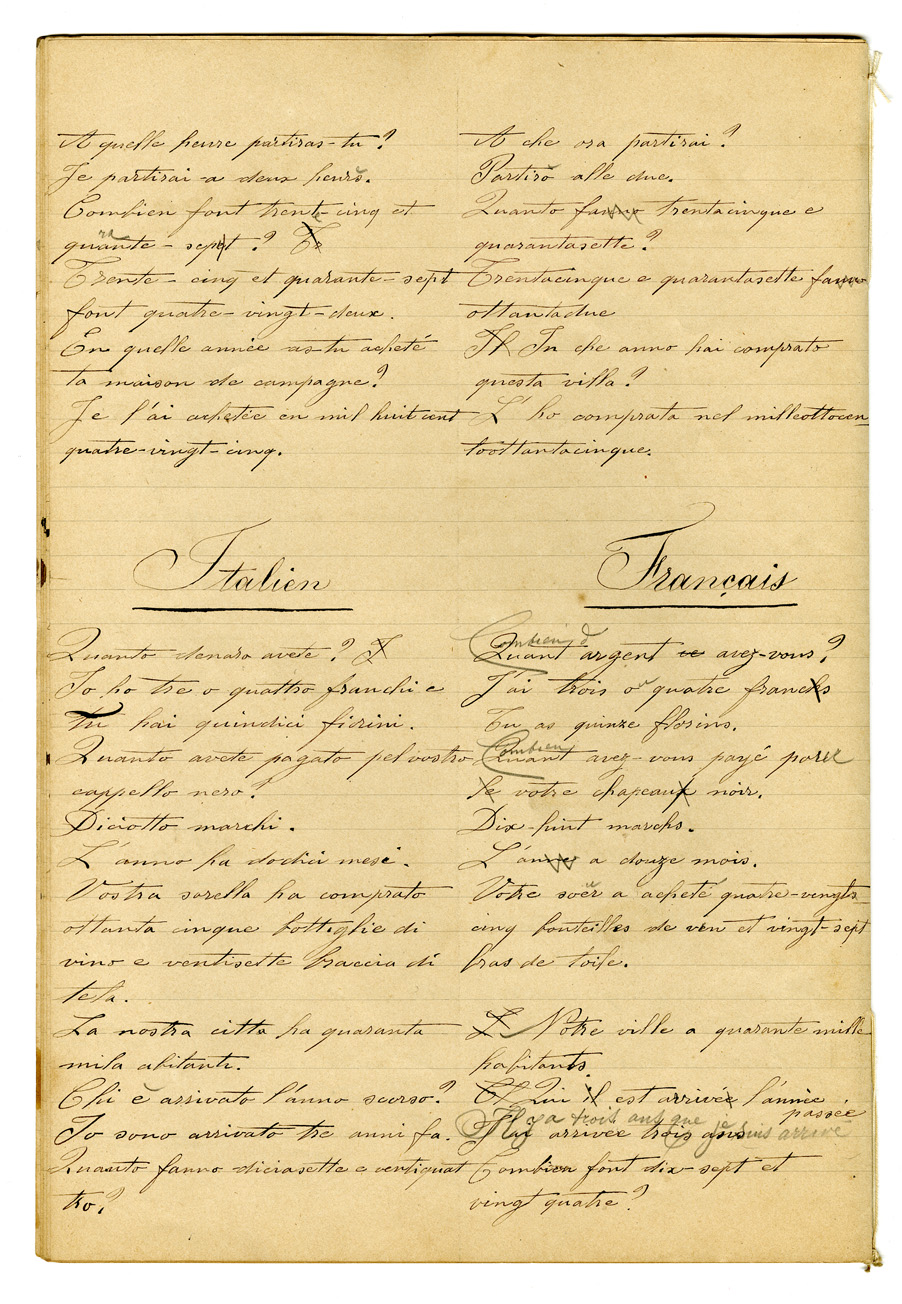 A quelle heure partiras-tu?
Je partirai-a deux heurs.
Combien font trente-cinq et
quarante-sept? Tr
Trente-cinq et quarante-sept
font quatre-vingt-deux.
En quelle année as-tu acheté
ta maison de campagne?
Je l'ai achetée en mil huit cent
quatre-vingt-cinq.
A che ora partirai?
Partirò alle due.
Quanto fanno trentacinque e
quarantasette?
Trentacinque e quarantasette fanno
ottantadue
In che anno hai comprato
questa villa?
L' ho comprata nel milleottocen
toottantacinque.
Italien
Quanto denaro avete? I
Io ho tre o quattro franchi e
tu hai quindici fiorini.
Quanto avete pagato pel vostro
cappello nero?
Diciotto marchi.
L'anno ha dodici mesi.
Vostra sorella ha comprato
ottanta cinque bottiglie di
vino e ventisette braccia di
tela.
La nostra citta ha quaranta
mila abitanti.
Chi è arrivato l'anno scorso?
Io sono arrivato tre anni fa.
Quanto fanno diciasette e ventiquat
tro?
Français
Combien d'
Quant argent avez-vous?
J'ai trois ou quatre francks
Tu as quinze florins.
Combien
Quant avez-vous payé pour
le votre chapeaux noir.
Dix-huit marchs.
L'anne a douze mois.
Votre soeur a acheté quatre-vingts
cinq bouteilles de ven et vingt-sept
bras de toile.
L Notre ville a quarante mille
habitants.
Qui il est arrivée l'année
passée
Il y a trois ans que je suis arrivé
arrivee trois ans
Combien font dix-sept et
vingt quatre?